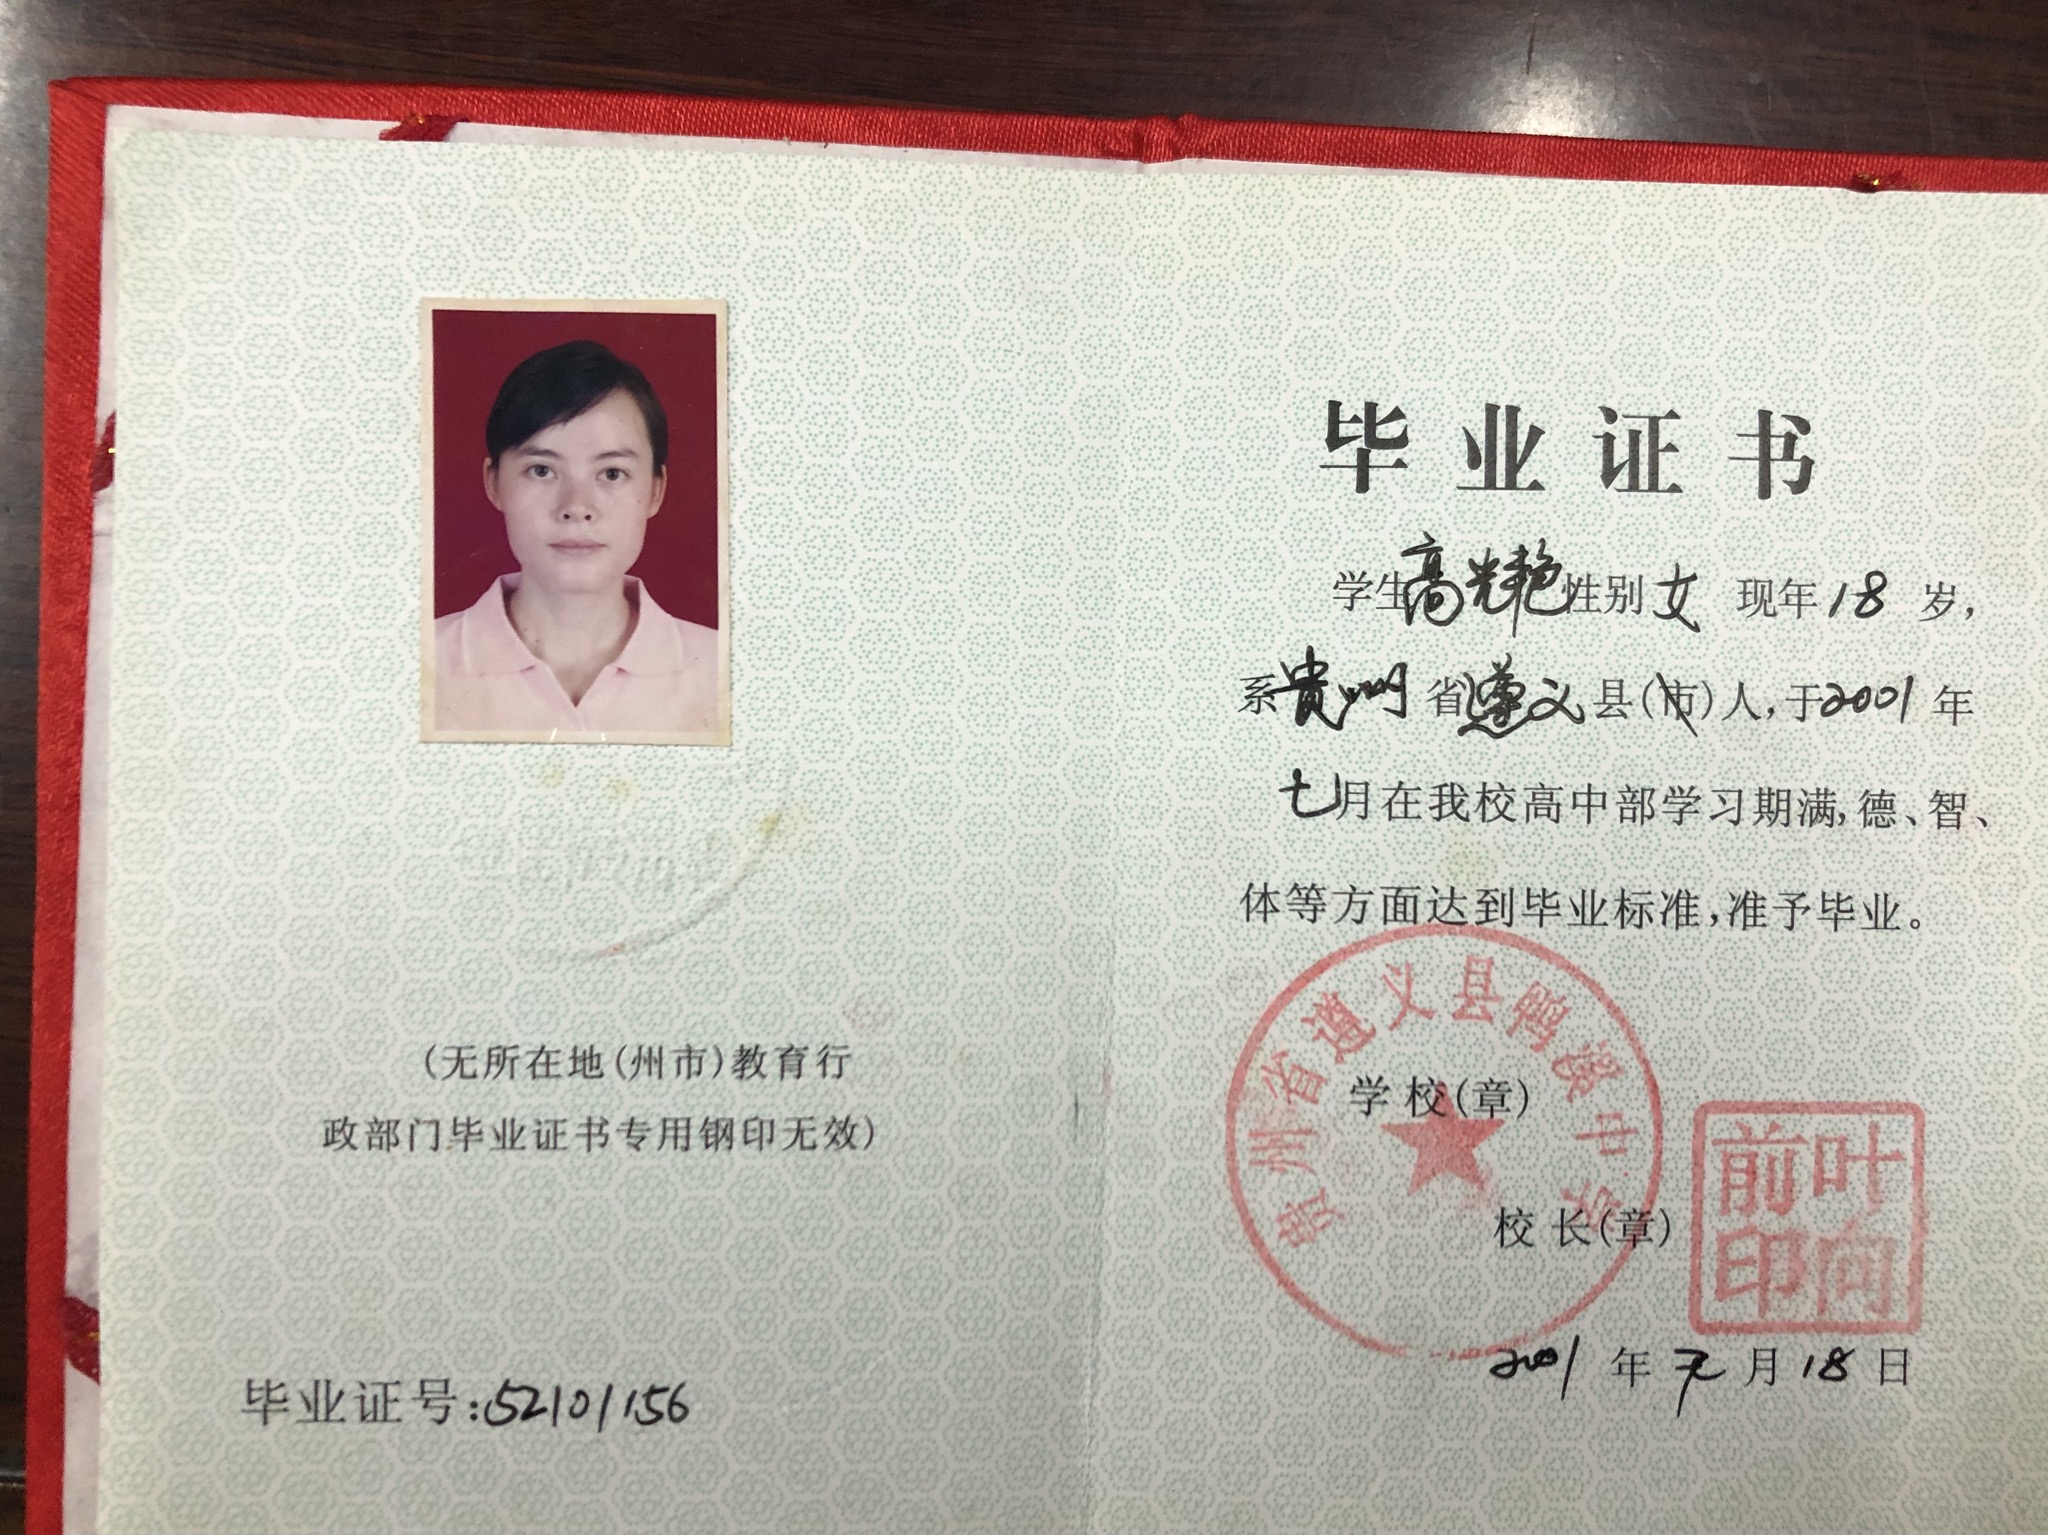 (无所在地(州市)教育行
政部门毕业证书专用钢印无效)
毕业证号:52101156
毕业证书
学生高光艳性别女 现年18岁,
系贵州省遵义县(市)人,于2001年
七月在我校高中部学习期满,德、智、
体等方面达到毕业标准,准予毕业。
贵州省遵义县鸭溪中学
学校(章)
校长(章)
叶向前印
2001年 月18日